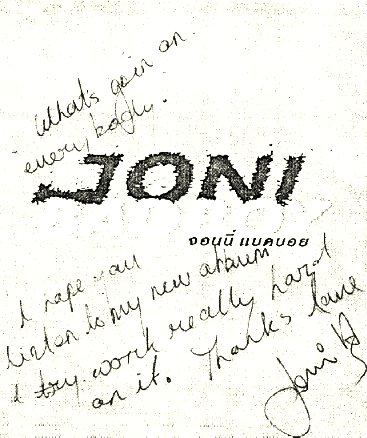 What's goin on
everybody.
JONI
จอนนี่ แบดบอย
I hope you
listen to my new album
I try work really hard
on it. Thanks love
Joni